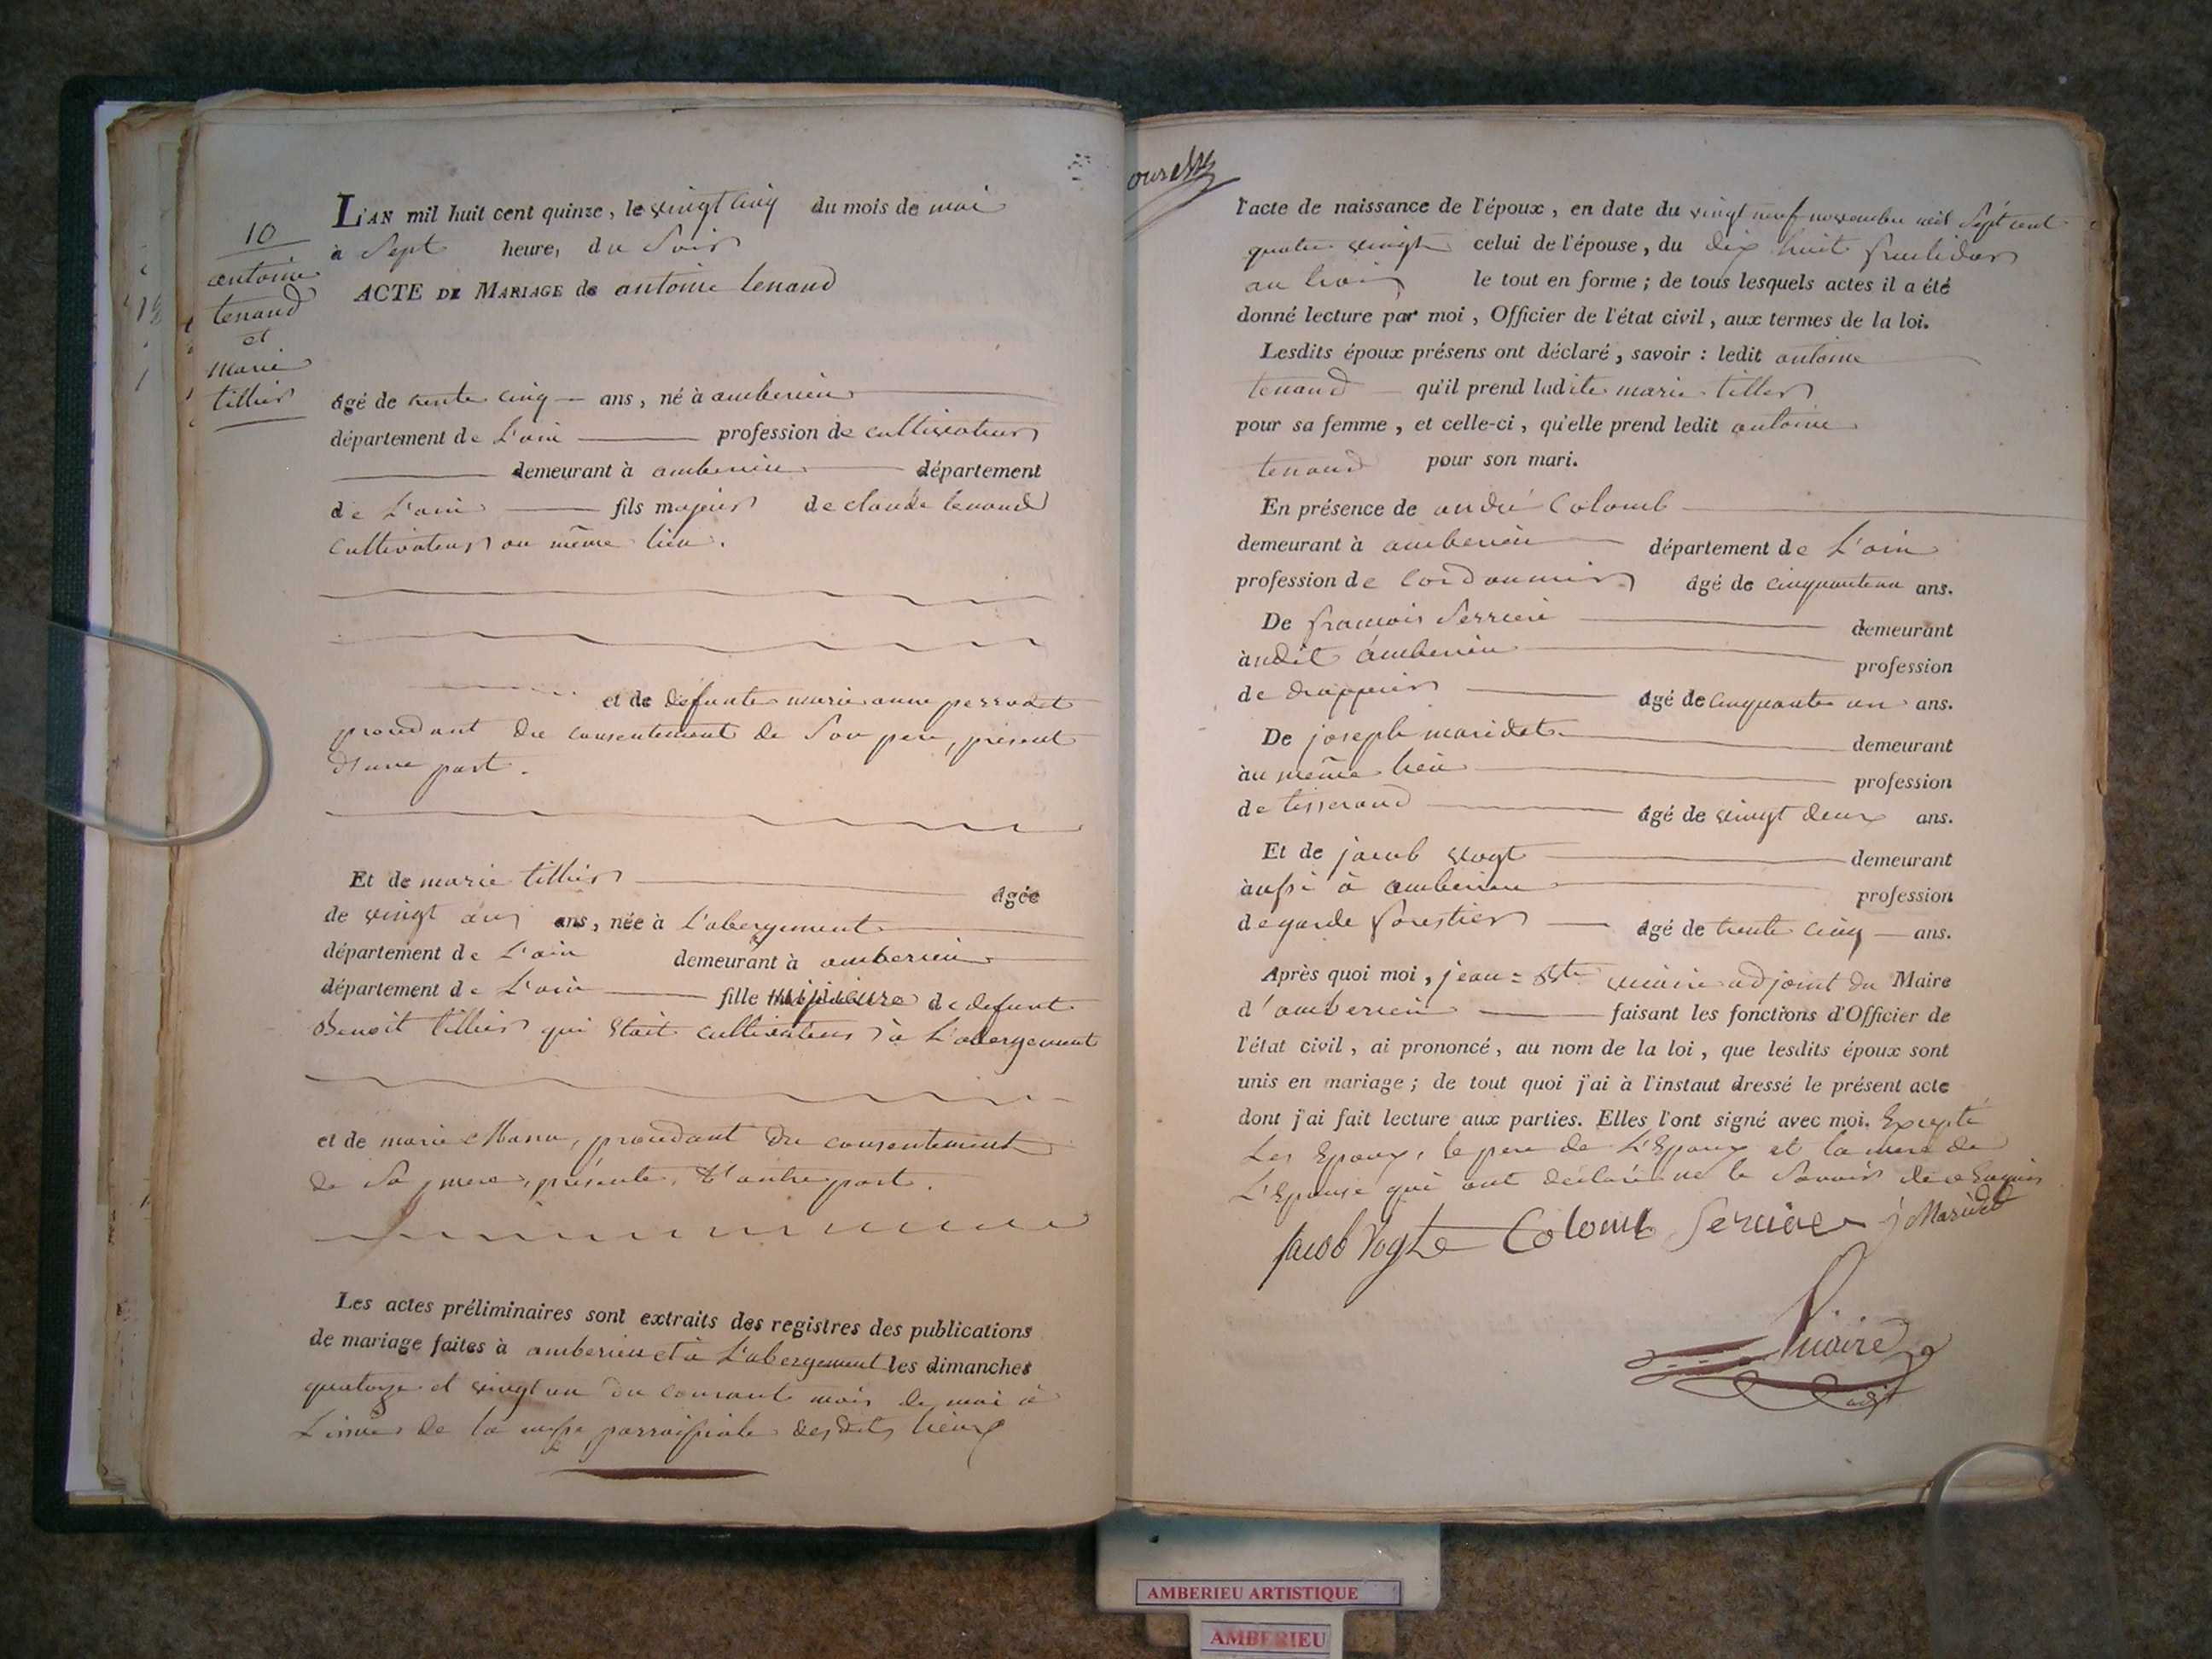 10
antoine
tenand
et
marie
tillier
L'AN mil huit cent quinze, le vingt cinq du mois de mai
à Sept heure, du Soir
ACTE DE MARIAGE de antoine tenand
âgé de trente cinq ans, né à amberieu
département de L'ain profession de cultivateur
demeurant à amberieu département
de L'ain fils majeur de claude tenand
cultivateur au même lieu.
et de defunte marie anne perrodet
procedant du consentement de Son pere, présent
d'une part.
Et de marie tillier âgée
de vingt ans, née à L'abergement
département de L'ain demeurant à amberieu
département de L'ain fille mineure de defunt
Benoit tillier qui Etait cultivateur à L'abergement
et de marie, procedant du consentement
de Sa mere, présente, d'autre part.
Les actes préliminaires sont extraits des registres des publications
de mariage faites à amberieu et à L'abergement les dimanches
quatorze et vingt un du courant mois de mai à
L'issue de la messe parroissiale desdits lieux
l'acte de naissance de l'époux, en date du vingt neuf novembre mil Sept cent
quatre vingt celui de l'épouse, du dix huit fructidor
an trois le tout en forme ; de tous lesquels actes il a été
donné lecture par moi, Officier de l'état civil, aux termes de la loi.
Lesdits époux présens ont déclaré, savoir : ledit antoine
tenand qu'il prend ladite marie tillier
pour sa femme, et celle-ci, qu'elle prend ledit antoine
tenand pour son mari.
En présence de andré Colomb
demeurant à amberieu département de L'ain
profession de Cordonnier âgé de cinquante un ans.
De françois Serriere demeurant
àudit amberieu profession
de drappier âgé de cinquante un ans.
De joseph maridet demeurant
àu même lieu profession
de tisserand âgé de vingt deux ans.
Et de jacob vogt demeurant
àussi à amberieu profession
de garde forestier âgé de trente cinq ans.
Après quoi moi, jean = Bte vuaire adjoint du Maire
d'amberieu faisant les fonctions d'Officier de
l'état civil, ai prononcé, au nom de la loi, que lesdits époux sont
unis en mariage ; de tout quoi j'ai à l'instaut dressé le présent acte
dont j'ai fait lecture aux parties. Elles l'ont signé avec moi. Excepté
Les Epoux, le pere de L'Epoux et la mere de
L'Epouse qui ont déclaré ne le Savoir de ce Enquis
Jacob Vogt Colomb Seriere j Maridet
Vuaire
adjt
AMBERIEU ARTISTIQUE
AMBERIEU